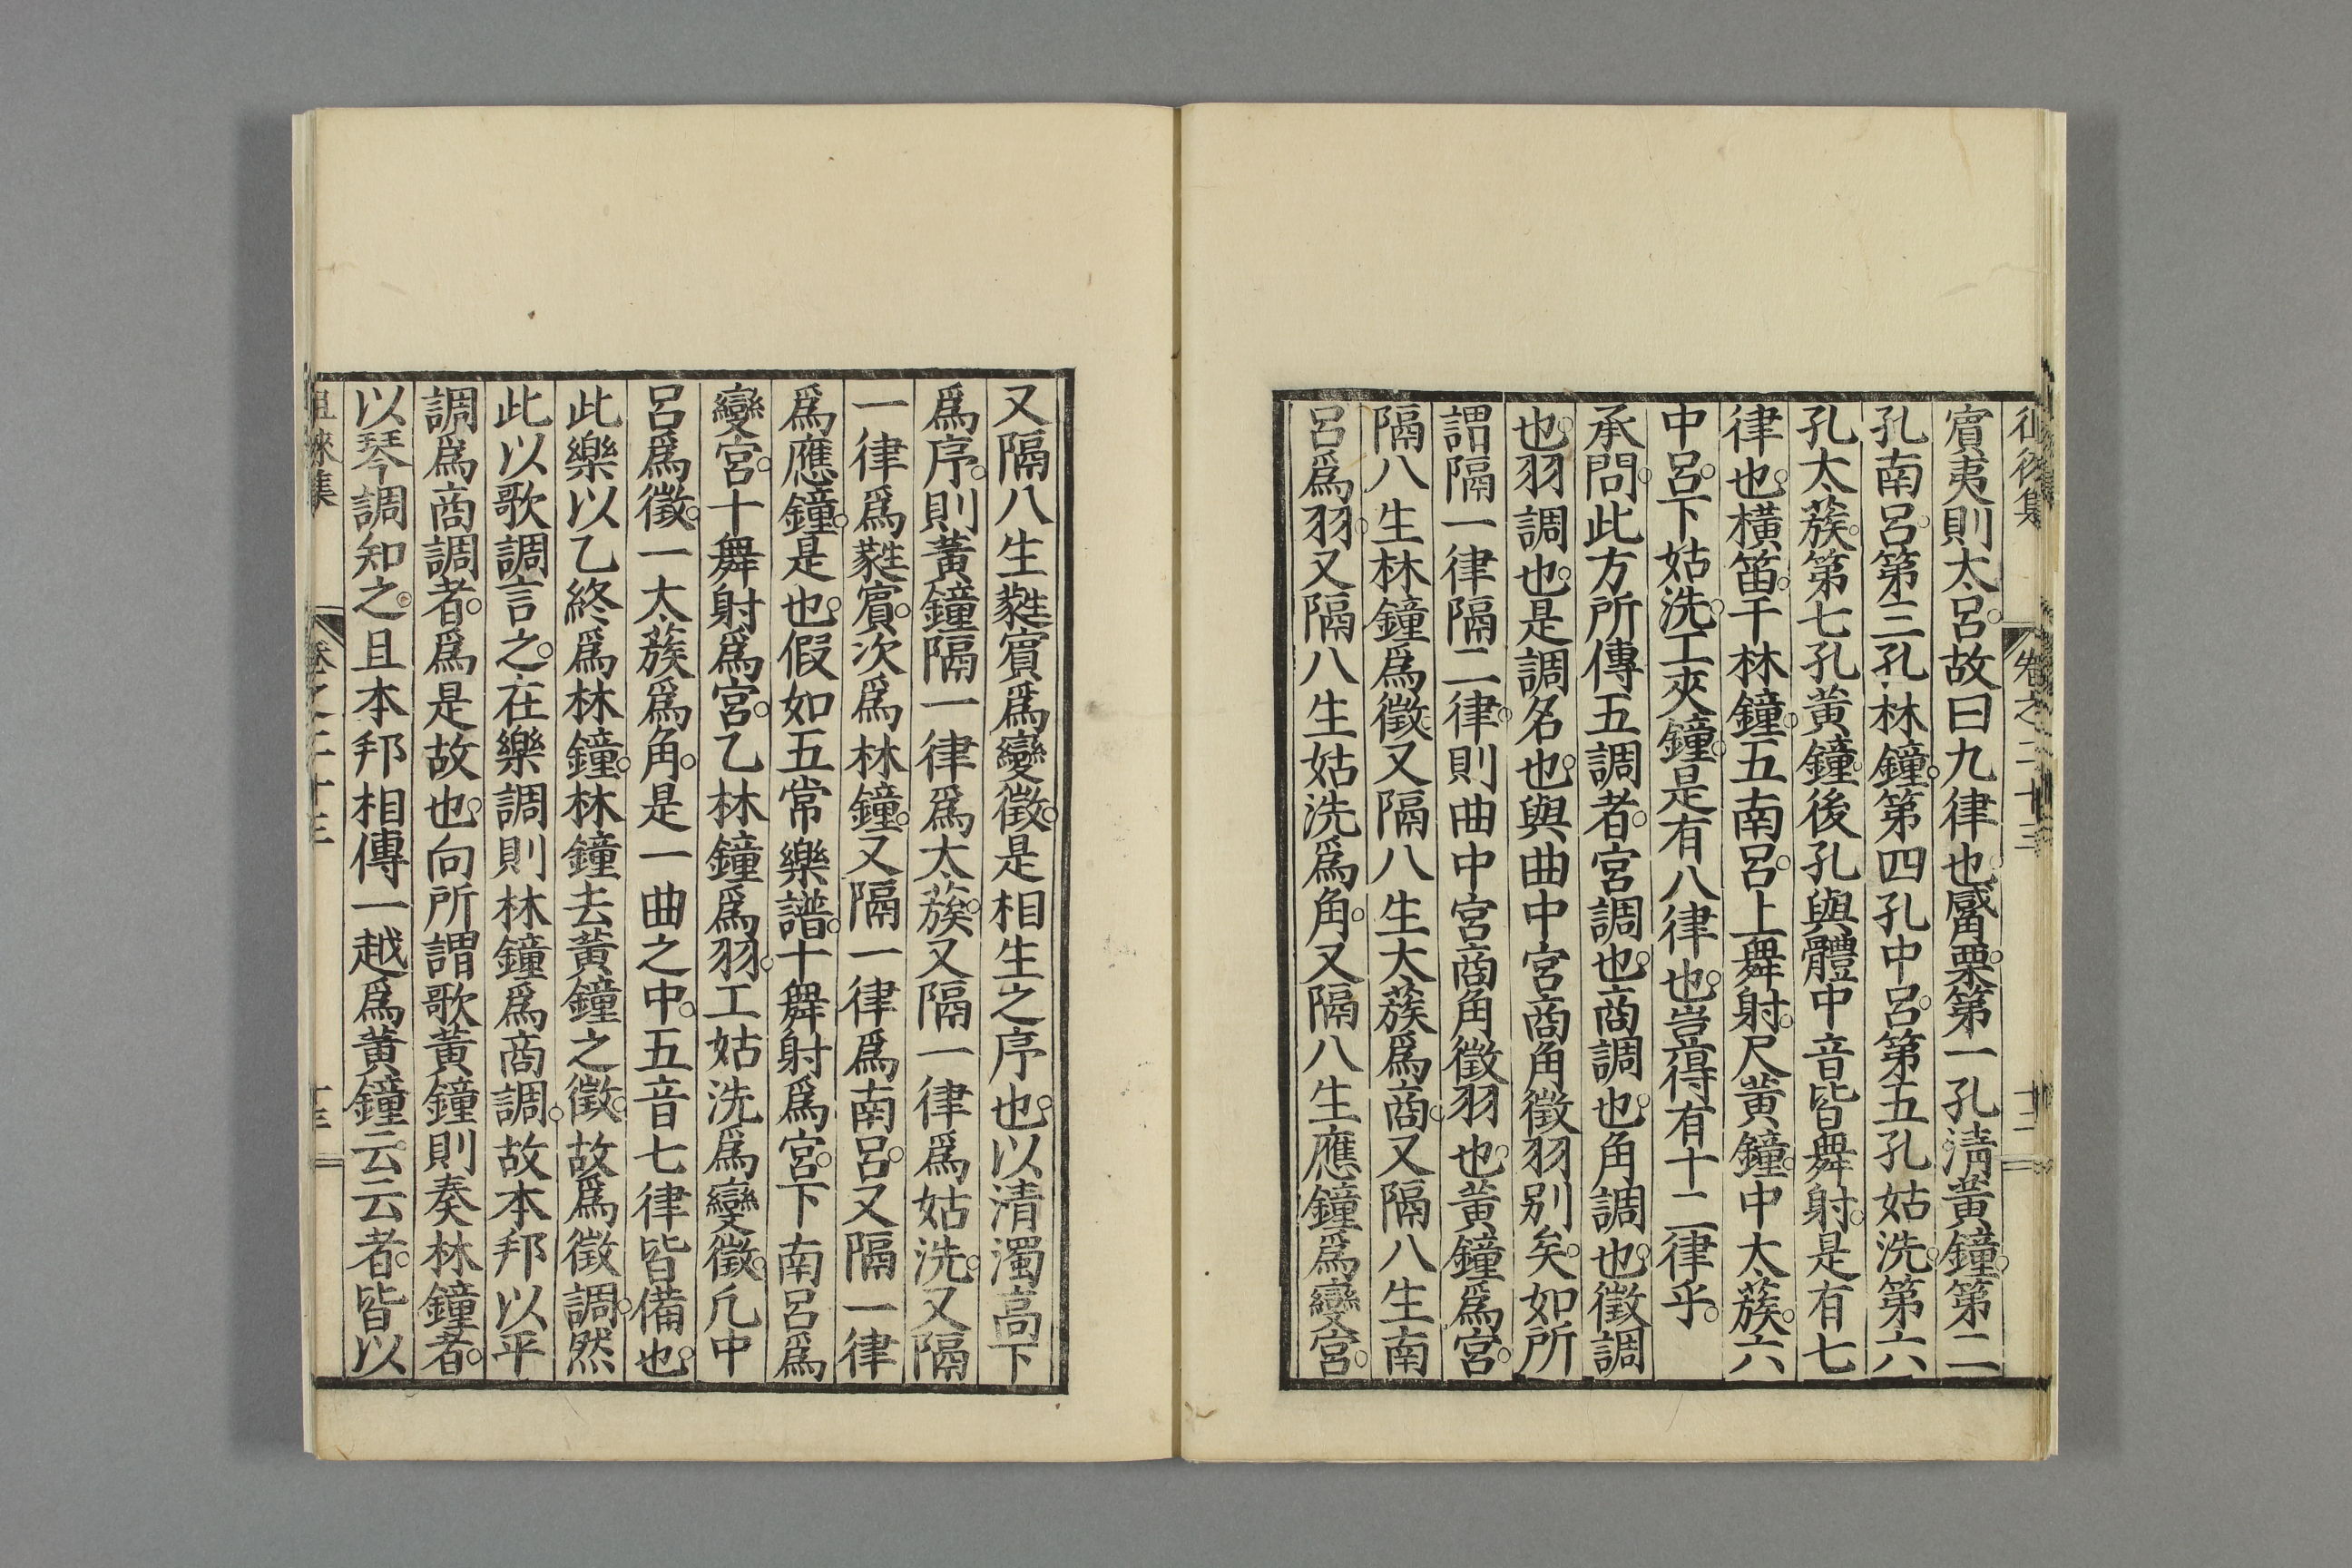 賓夷則太呂。故曰九律也。觱栗。第一孔淸黃鐘。第二
孔南呂。第三孔林鐘。第四孔中呂。第五孔姑洗。第六
孔太蔟。第七孔黃鐘。後孔與體中音皆舞射。是有七
律也。橫笛。干林鐘。五南呂。上舞射。尺黃鐘。中太蔟。六
中呂。下姑洗。工夾鐘。是有八律也。豈得有十二律乎。
承問。此方所傳五調者。宮調也。商調也。角調也。徵調
也。羽調也。是調名也。與曲中宮商角徵羽別矣。如所
謂隔一律隔二律。則曲中宮商角徵羽也。黃鐘爲宮。
隔八生林鐘爲徵。又隔八生大蔟爲商。又隔八生南
呂爲羽。又隔八生姑洗爲角。又隔八生應鐘爲變宮。
又隔八生蕤賓爲變徵。是相生之序也。以清濁高下
爲序。則黃鐘隔一律爲太蔟。又隔一律爲姑洗。又隔
一律爲蕤賓。次爲林鐘。又隔一律爲南呂。又隔一律
爲應鐘。是也。假如五常樂譜。十舞射爲宮。下南呂爲
變宮。十舞射爲宮。乙林鐘爲羽。工姑洗爲變徵。凢中
呂爲徵。一太蔟爲角。是一曲之中。五音七律皆備也。
此樂以乙終爲林鐘。林鐘去黃鐘之徵。故爲徵調。然
此以歌調言之。在樂調則林鐘爲商調。故本邦以平
調爲商調者。爲是故也。向所謂歌黃鐘則奏林鐘者。
以琴調知之。且本邦相傳一越爲黃鐘云云者。皆以
徠集 卷之二十三 十三